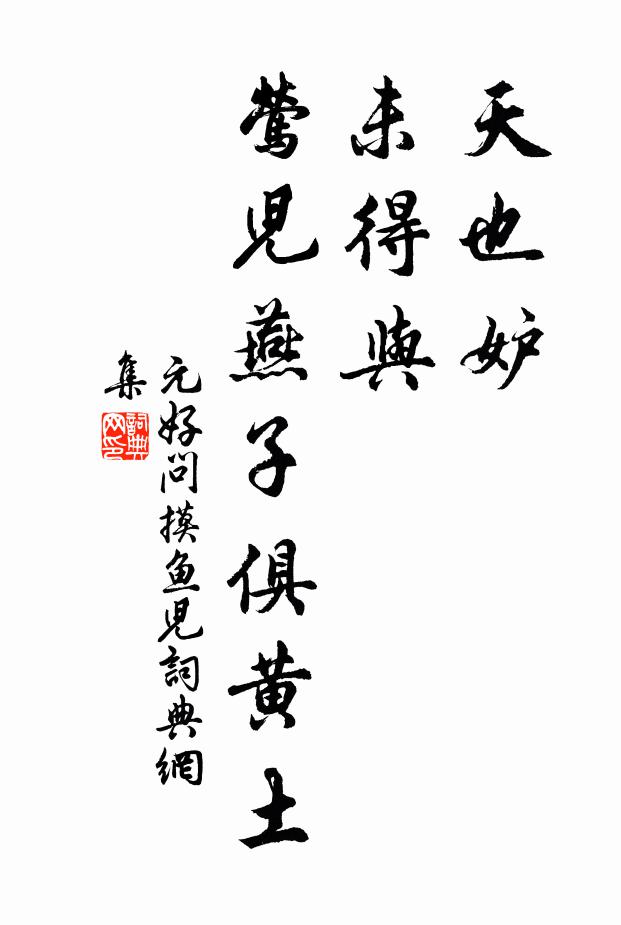 天也妒
未得與
鶯兒燕子俱黄土
元好問摸鱼兒詞典網
集
詞典
网印